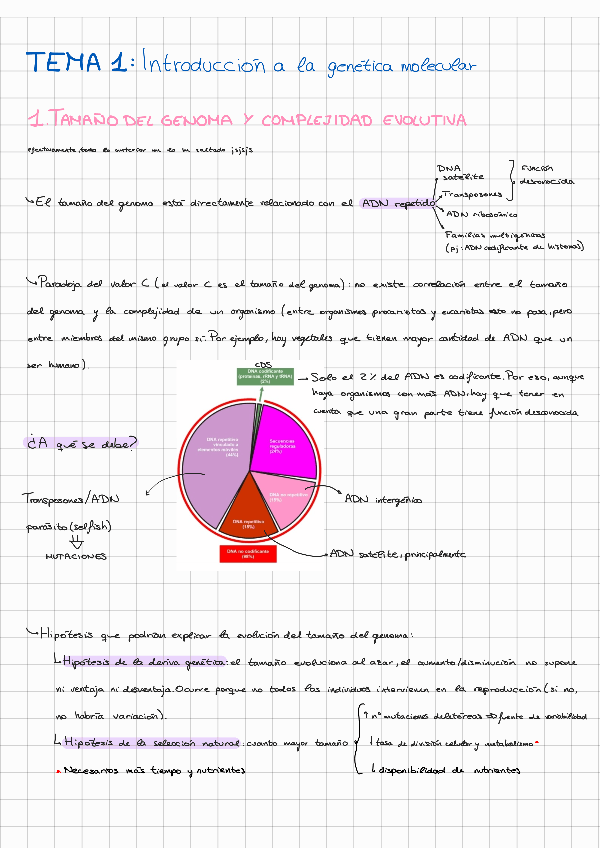 TEMA 1: Introducción a la genética molecular
1. TAMAÑO DEL GENOMA Y COMPLEJIDAD EVOLUTIVA
DNA satélite
Transposones
función desconocida
El tamaño del genoma está directamente relacionado con el ADN repetido
ADN ribosómico
Familias multigénicas
(pj: ADN codificante de histonas)
Paradoja del valor C (el valor C es el tamaño del genoma): no existe correlación entre el tamaño
del genoma y la complejidad de un organismo (entre organismos procariotas y eucariotas esto no pasa, pero
entre miembros del mismo grupo sí. Por ejemplo, hay vegetales que tienen mayor cantidad de ADN que un
ser humano).
CDS
DNA codificante
(proteínas, rRNA y tRNA)
(2%)
Solo el 2% del ADN es codificante. Por eso, aunque
haya organismos con más ADN, hay que tener en
cuenta que una gran parte tiene función desconocida
¿A qué se debe?
DNA repetitivo
vinculado a
elementos móviles
(44%)
Secuencias
reguladoras
(24%)
DNA no repetitivo
(15%)
DNA repetitivo
(15%)
DNA no codificante
(98%)
Transposones/ADN
parásito (selfish)
MUTACIONES
ADN intergénico
ADN satélite, principalmente
Hipótesis que podrían explicar la evolición del tamaño del genoma:
Hipótesis de la deriva genética: el tamaño evoluciona al azar, el aumento/disminución no supone
ni ventaja ni desventaja. Ocurre porque no todos los individuos intervienen en la reproducción (si no,
no habría variación).
↑ nº mutaciones deletéreas fuente de variabilidad
Hipótesis de la selección natural: cuanto mayor tamaño
↓ tasa de división celular y metabolismo*
* Necesarios más tiempo y nutrientes
↓ disponibilidad de nutrientes